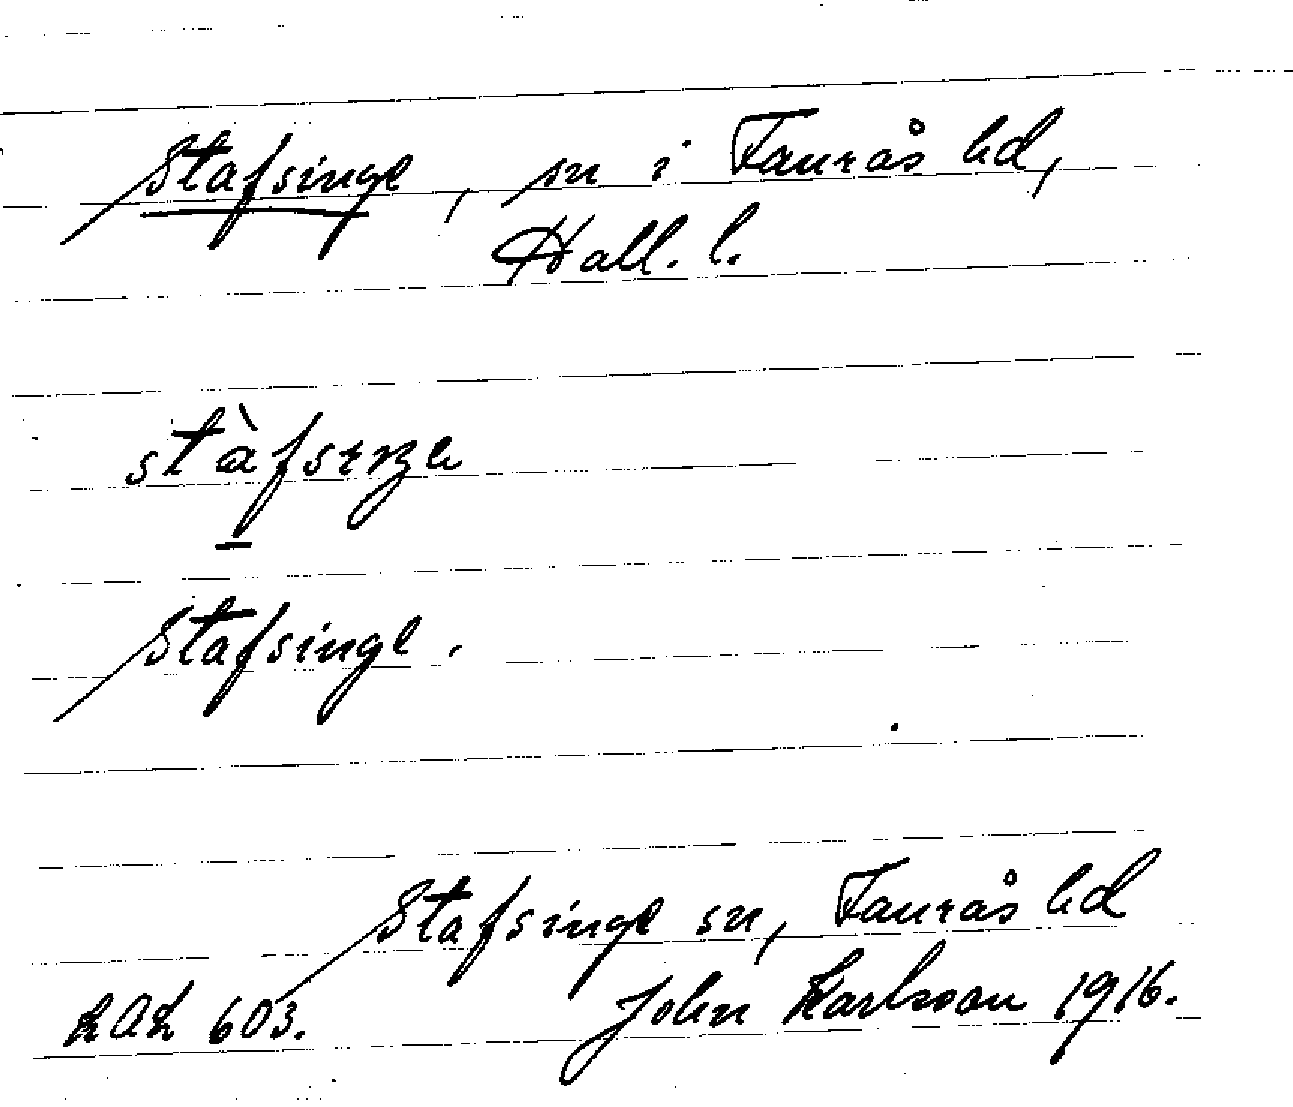 Stafsinge, sn i Faurås hd,
Hall. l.
stàfsıŋe
Stafsinge.
Stafsinge sn, Faurås hd
LAL 603. John Karlsson 1916.